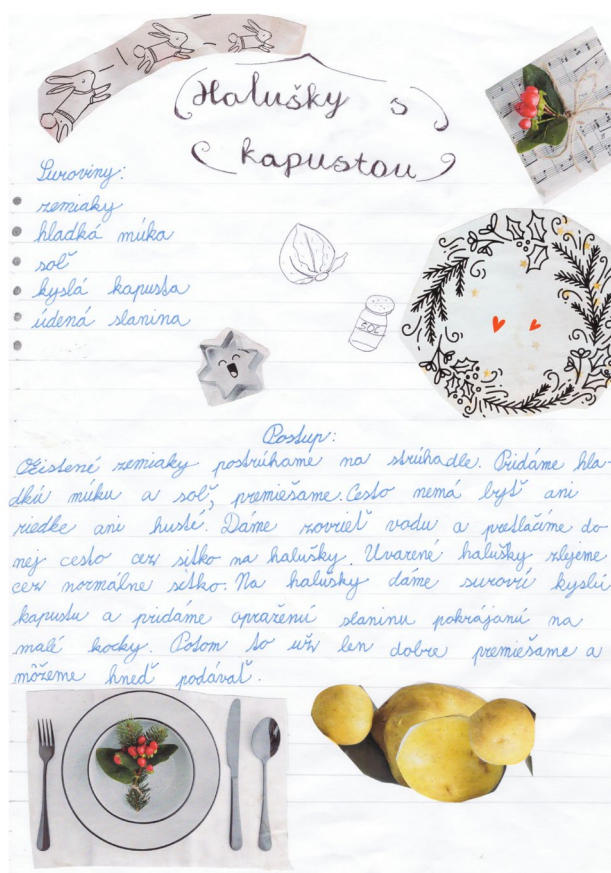 Halušky s
kapustou
Suroviny:
zemiaky
hladká múka
soľ
kyslá kapusta
údená slanina
SOĽ
Postup:
Očistené zemiaky postrúhame na strúhadle. Pridáme hla-
dkú múku a soľ, premiešame. Cesto nemá byť ani
riedke ani husté. Dáme zovrieť vodu a pretlačíme do
nej cesto cez sitko na halušky. Uvarené halušky zlejeme
cez normálne sitko. Na halušky dáme surovú kyslú
kapustu a pridáme opraženú slaninu pokrájanú na
malé kocky. Potom to už len dobre premiešame a
môžeme hneď podávať.